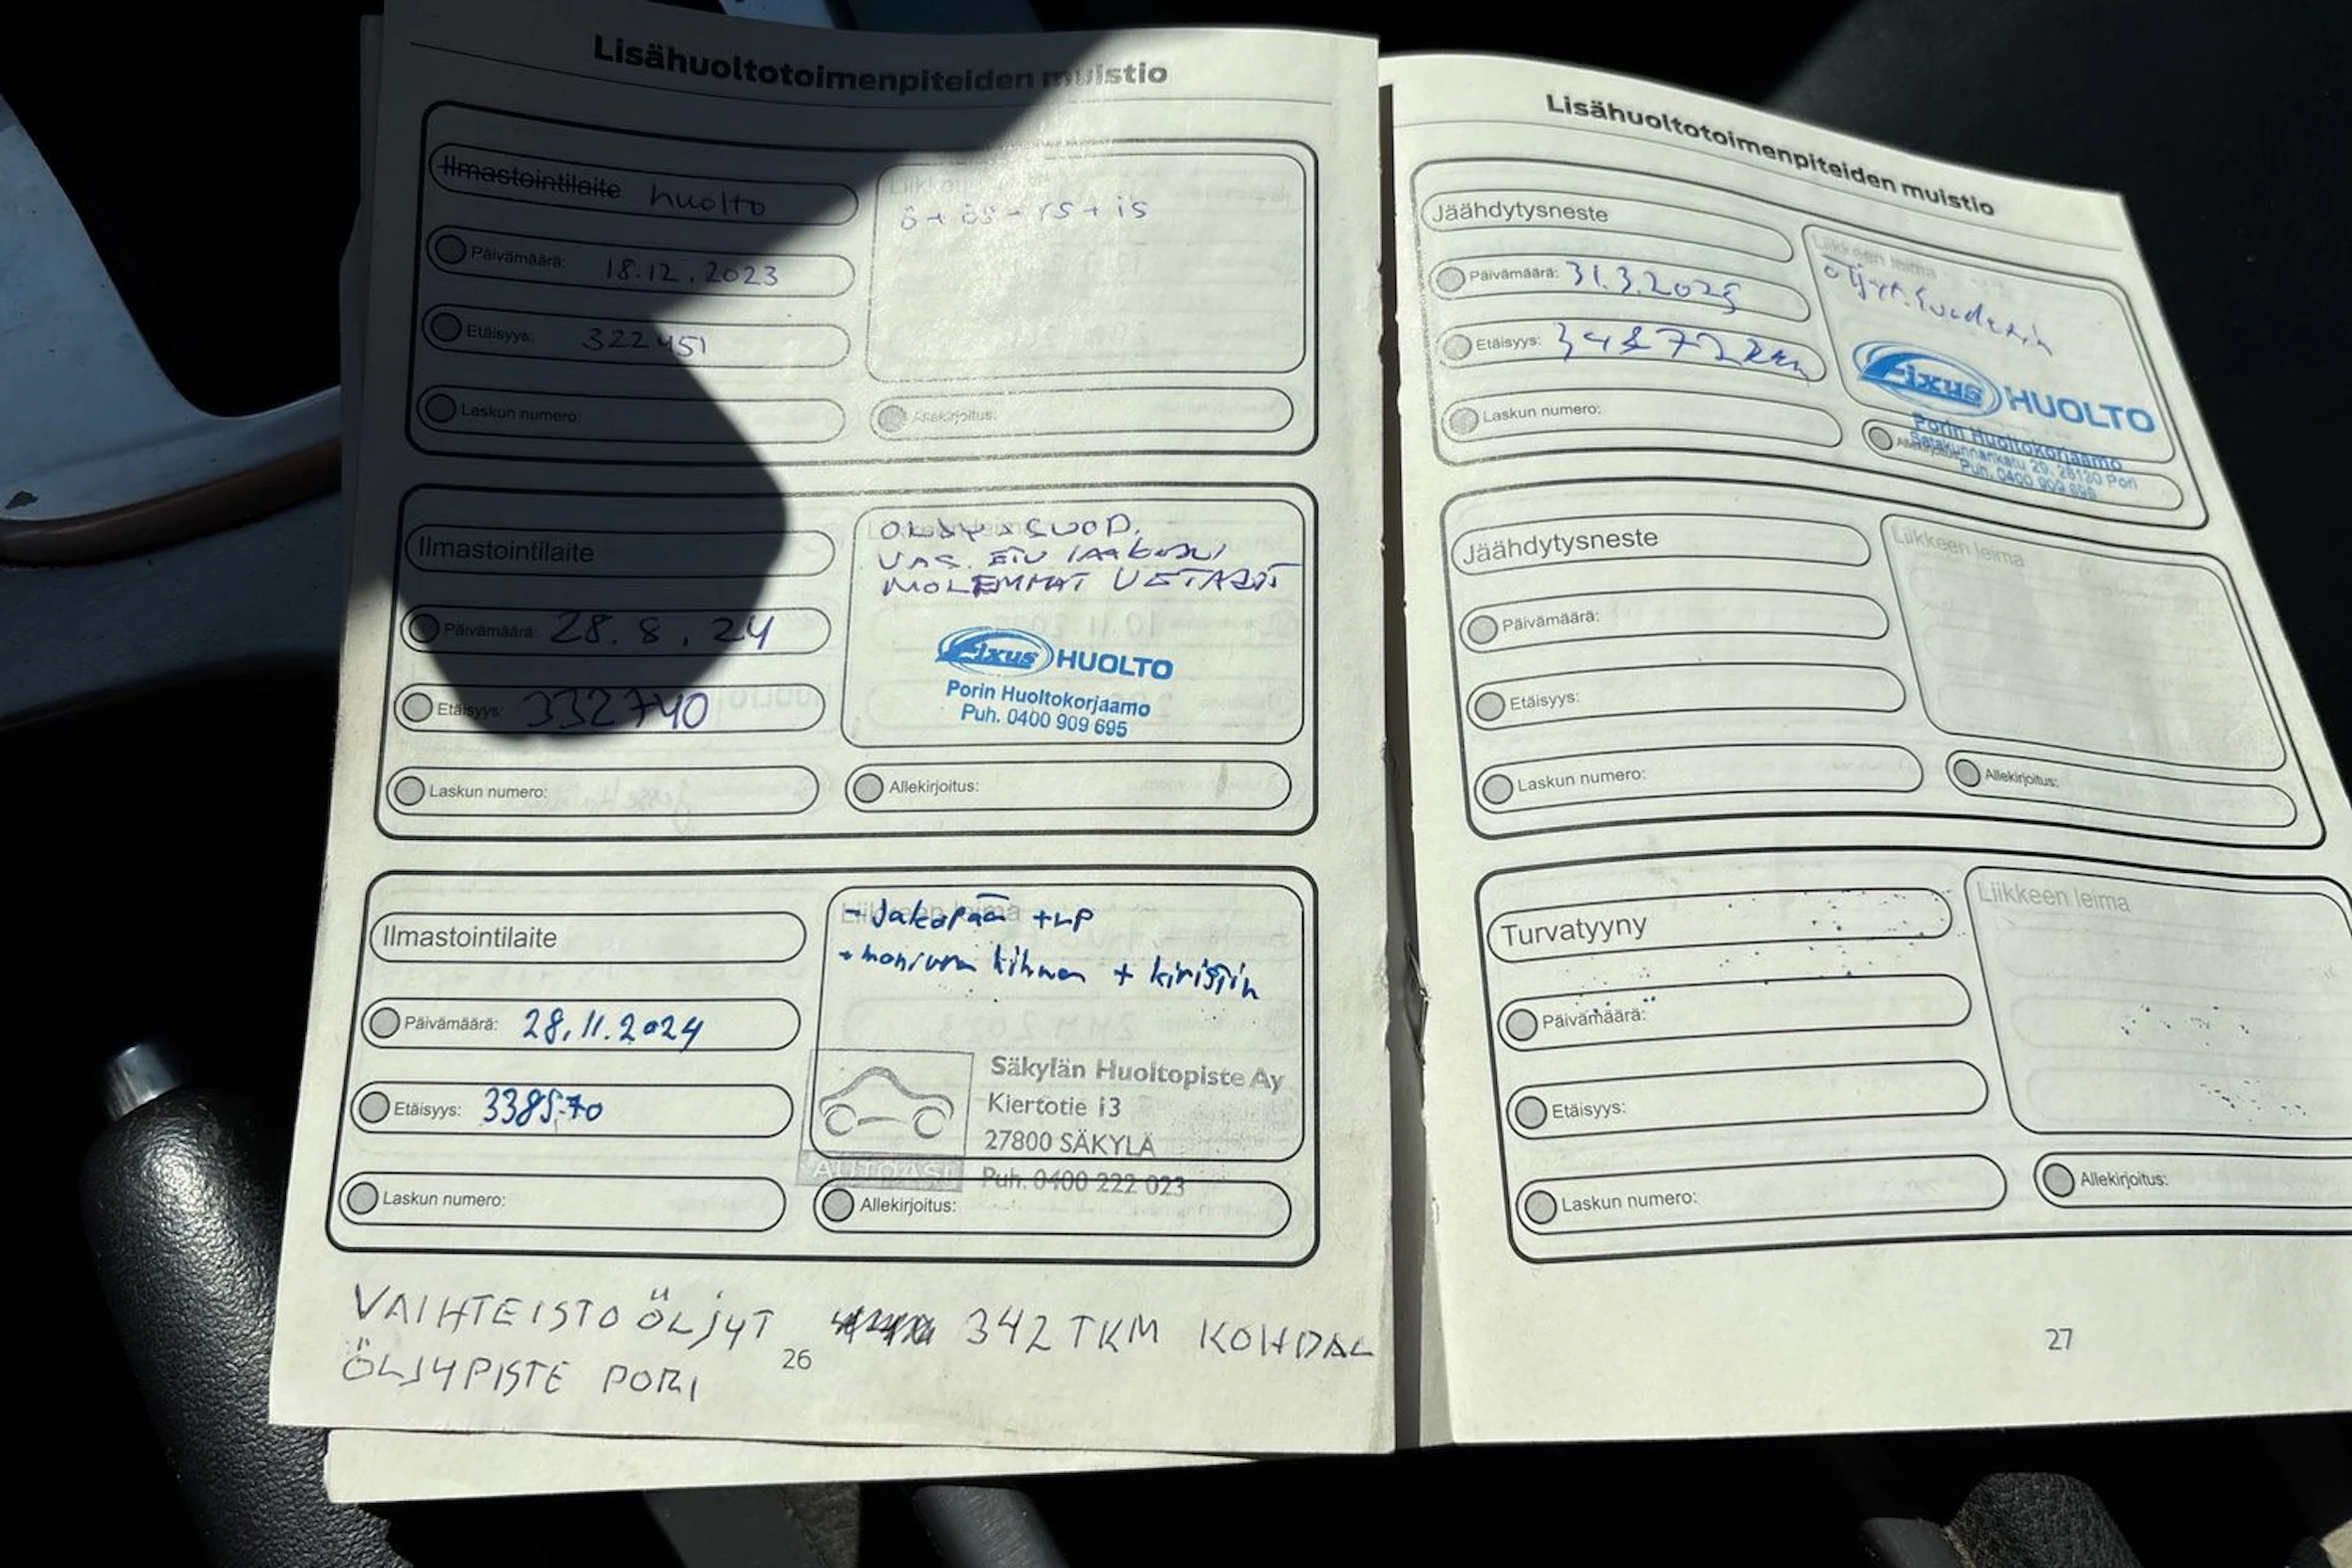 Lisähuoltotoimenpiteiden muistio
Ilmastointilaite huolto
Päivämäärä: 18.12.2023
Etäisyys: 322451
Laskun numero:
ö + ös + rs + is
Allekirjoitus:
Ilmastointilaite
Päivämäärä: 28.8.24
Etäisyys: 332740
Laskun numero:
SUOD.
VAS. ETU
MOLEMMAT
Fixus HUOLTO
Porin Huoltokorjaamo
Puh. 0400 909 695
Allekirjoitus:
Ilmastointilaite
Päivämäärä: 28.11.2024
Etäisyys: 338570
Laskun numero:
- Jakopää + LP
+ moniura hihnan + kiristin
Liikkeen leima
Säkylän Huoltopiste Ay
Kiertotie 13
27800 SÄKYLÄ
Puh. 0400 222 023
AUTOASI
Allekirjoitus:
VAIHTEISTO ÖLJYT 342 TKM KOHDAL
ÖLJYPISTE PORI
26
Lisähuoltotoimenpiteiden muistio
Jäähdytysneste
Päivämäärä: 31.3.2025
Etäisyys: km
Laskun numero:
Liikkeen leima
Fixus HUOLTO
Porin Huoltokorjaamo
Satakunnankatu 29, 28130 Pori
Puh. 0400 909 695
Jäähdytysneste
Päivämäärä:
Etäisyys:
Laskun numero:
Liikkeen leima
Allekirjoitus:
Turvatyyny
Päivämäärä:
Etäisyys:
Laskun numero:
Liikkeen leima
Allekirjoitus:
27